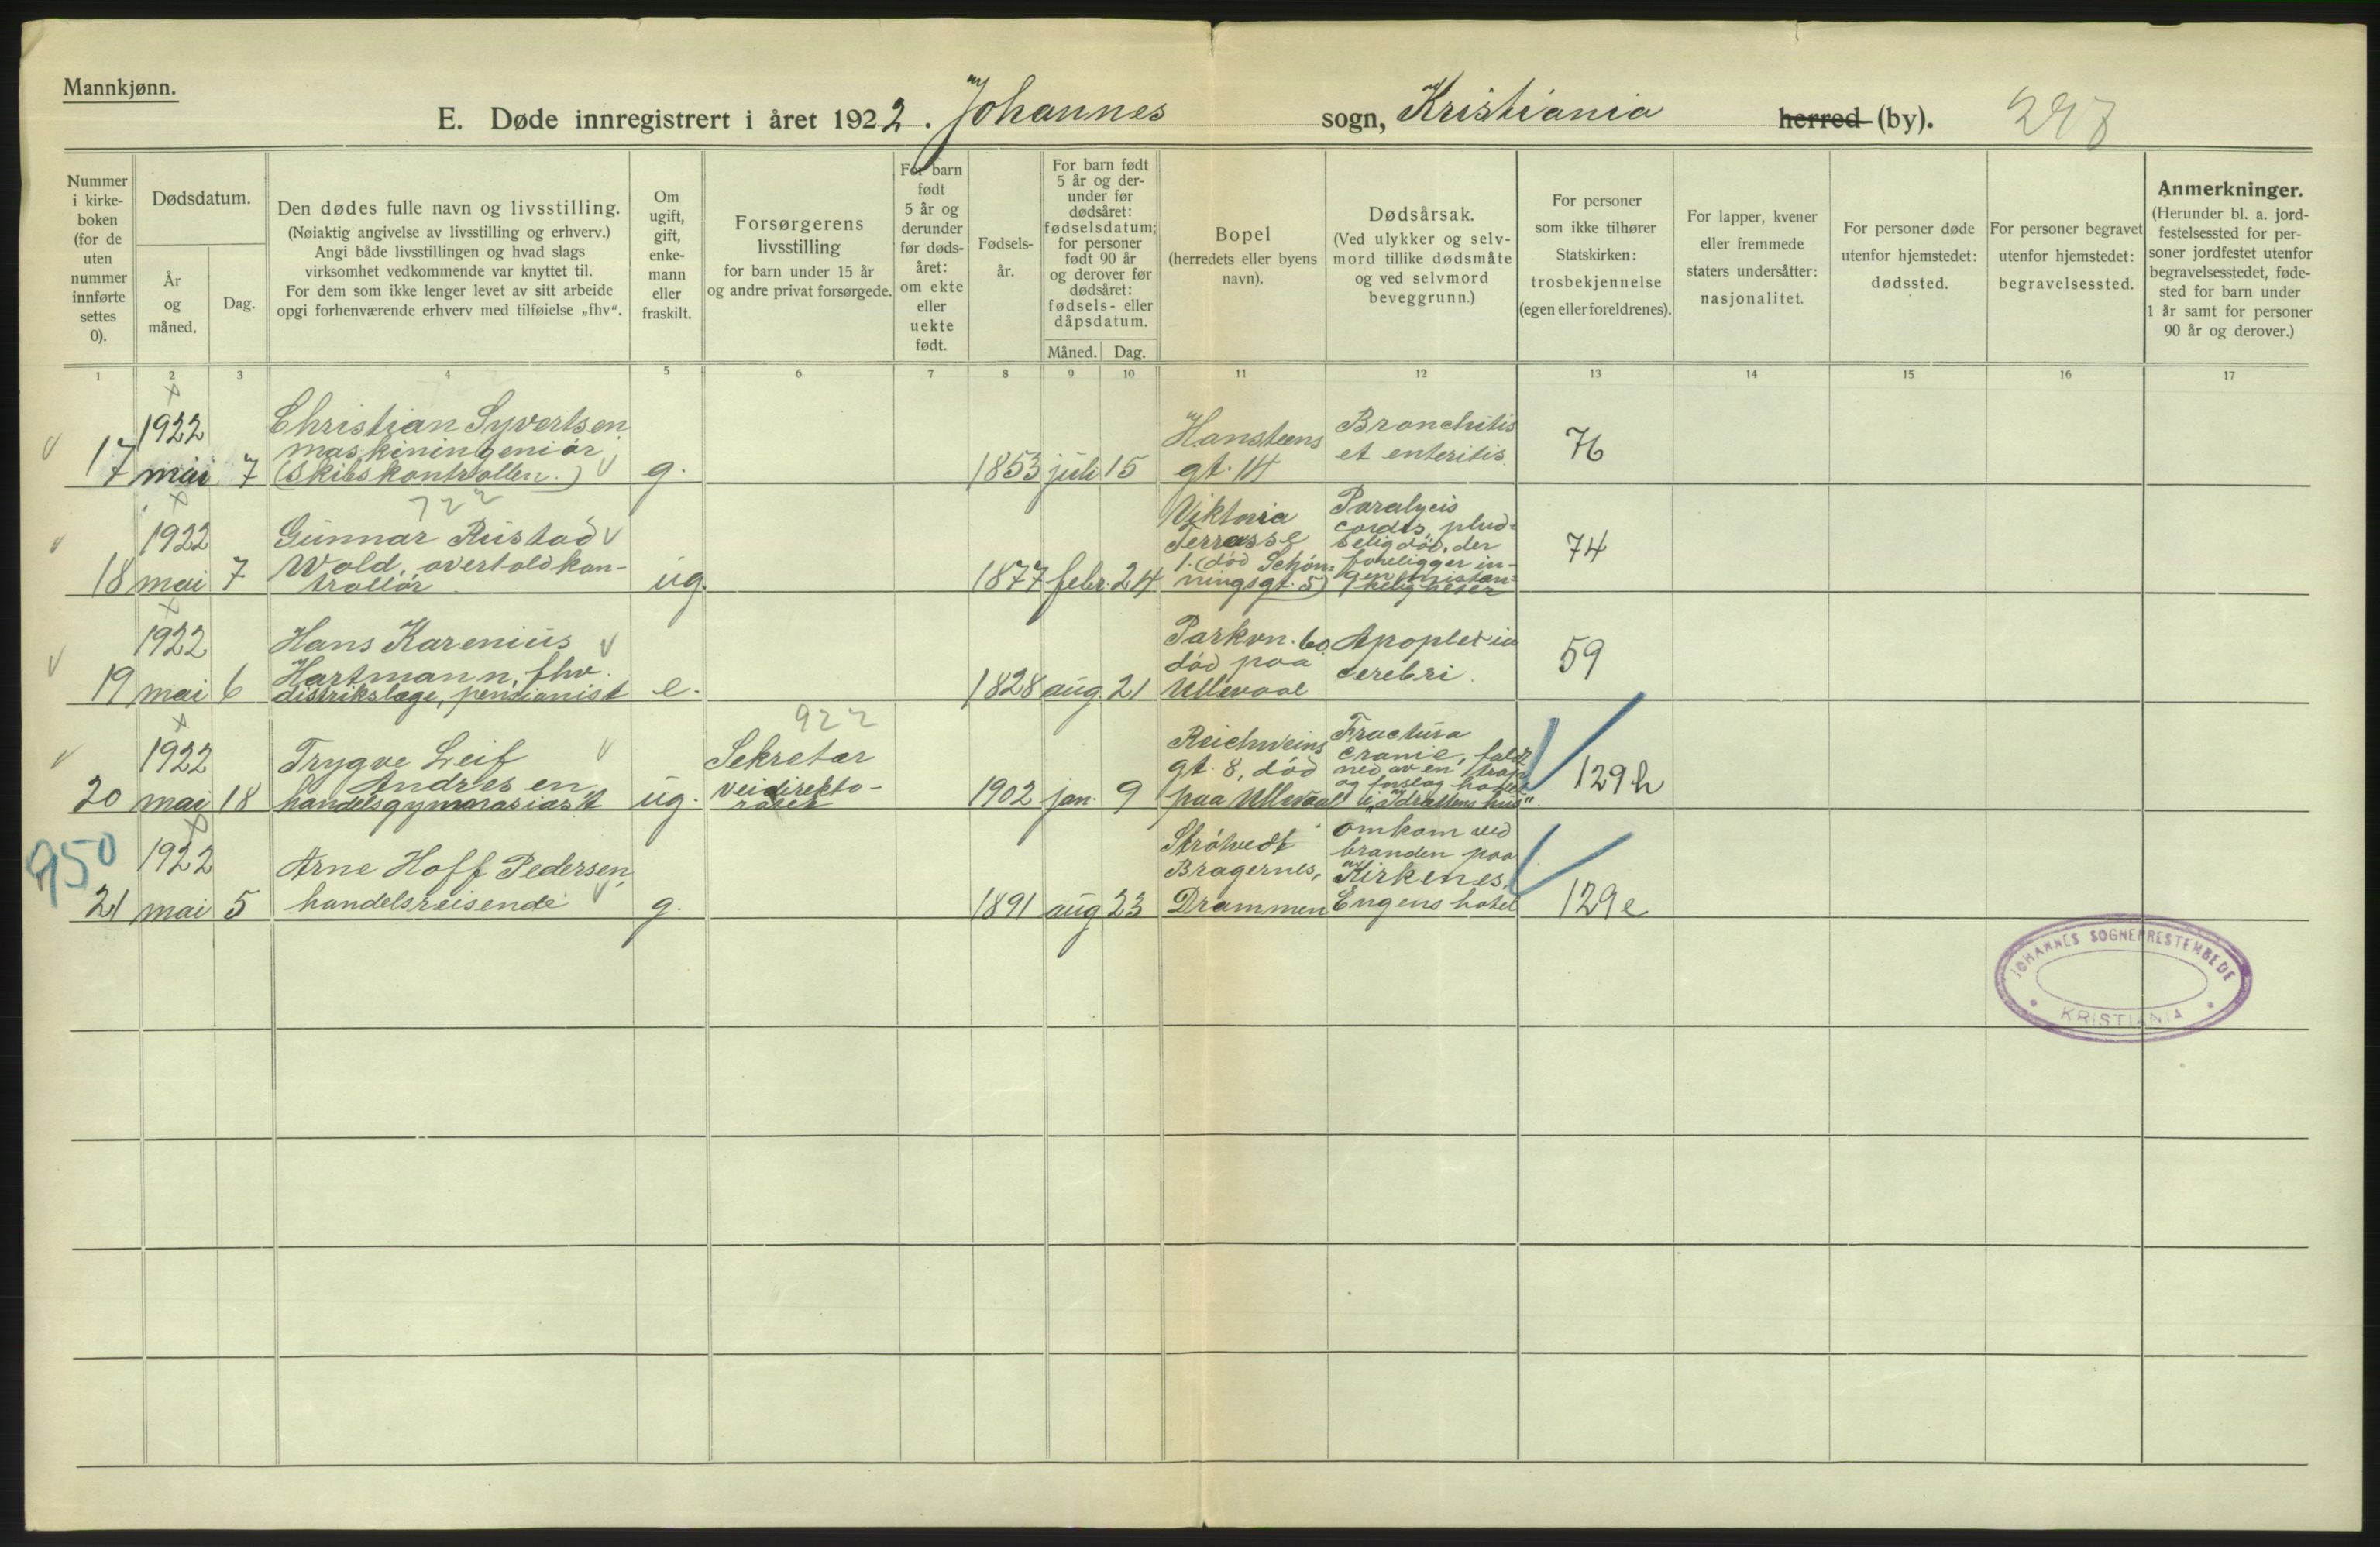 Mannkjønn.
E. Døde innregistrert i året 1922. Johannes sogn, Kristiania herred (by). 
Nummer i kirke- boken (for de uten nummer innførte settes 0).
Dødsdatum.
År og måned.
Dag.
Den dødes fulle navn og livsstilling.
(Nøiaktig angivelse av livsstilling og erhverv.)
Angi både livsstillingen og hvad slags
virksomhet vedkommende var knyttet til.
For dem som ikke lenger levet av sitt arbeide
opgi forhenværende erhverv med tilføielse „fhv“.
Om ugift, gift, enke- mann eller fraskilt.
Forsørgerens
livsstilling
for barn under 15 år
og andre privat forsørgede.
For barn født 5 år og derunder før døds- året: om ekte eller uekte født.
Fødsels- år.
For barn født 5 år og der- under før dødsåret: fødselsdatum; for personer født 90 år og derover før dødsåret: fødsels- eller dåpsdatum.
Måned. Dag.
Bopel
(herredets eller byens
navn).
Dødsårsak.
(Ved ulykker og selv-
mord tillike dødsmåte
og ved selvmord
beveggrunn.)
For personer
som ikke tilhører
Statskirken:
trosbekjennelse
(egen eller foreldrenes).
For lapper, kvener
eller fremmede
staters undersåtter:
nasjonalitet.
For personer døde
utenfor hjemstedet:
dødssted.
For personer begravet
utenfor hjemstedet:
begravelsessted.
Anmerkninger.
(Herunder bl. a. jord-
festelsessted for per-
soner jordfestet utenfor
begravelsesstedet, føde-
sted for barn under
1 år samt for personer
90 år og derover.)
1 2 3 4 5 6 7 8 9 10 11 12 13 14 15 16 17
17 1922 mai 7
Christian Syvertsen
maskiningeniør
(Skibskontrollen.)
g.
1853 juli 15
Hansteens
gt. 14
Bronchitis
et enteritis
76
722
18 1922 mai 7
Gunnar Rustad
Wold, overtoldkon-
trollør
ug.
1877 febr. 24
Viktoria
Terrasse
1. (død Schøn-
ningsgt. 5)
Paralysis
cordis, plud-
selig død, der
foreligger in-
gen mistæn-
keligheter
74
19 1922 mai 6
Hans Karenius
Hartmann, fhv.
distrikslæge, pensionist
e.
1828 aug. 21
Parkvn. 60
død paa
Ullevaal
Apoplexia
cerebri.
59
922
20 1922 mai 18
Trygve Leif
Andresen
handelsgymnasiast
ug.
Sekretær
veidirekto-
ratet
1902 jan. 9
Reichweins
gt. 8, død
paa Ullevaal
Fractura
cranie, faldt
ned av en trap
og forslog hodet
i „Idrættens hus“.
129h
950
21 1922 mai 5
Arne Hoff Pedersen,
handelsreisende
g.
1891 aug 23
Strøtvedt
Bragernes,
Drammen
omkom ved
branden paa
Kirkenes,
Engens hotel
129e
JOHANNES SOGNEPRESTEMBEDE
KRISTIANIA